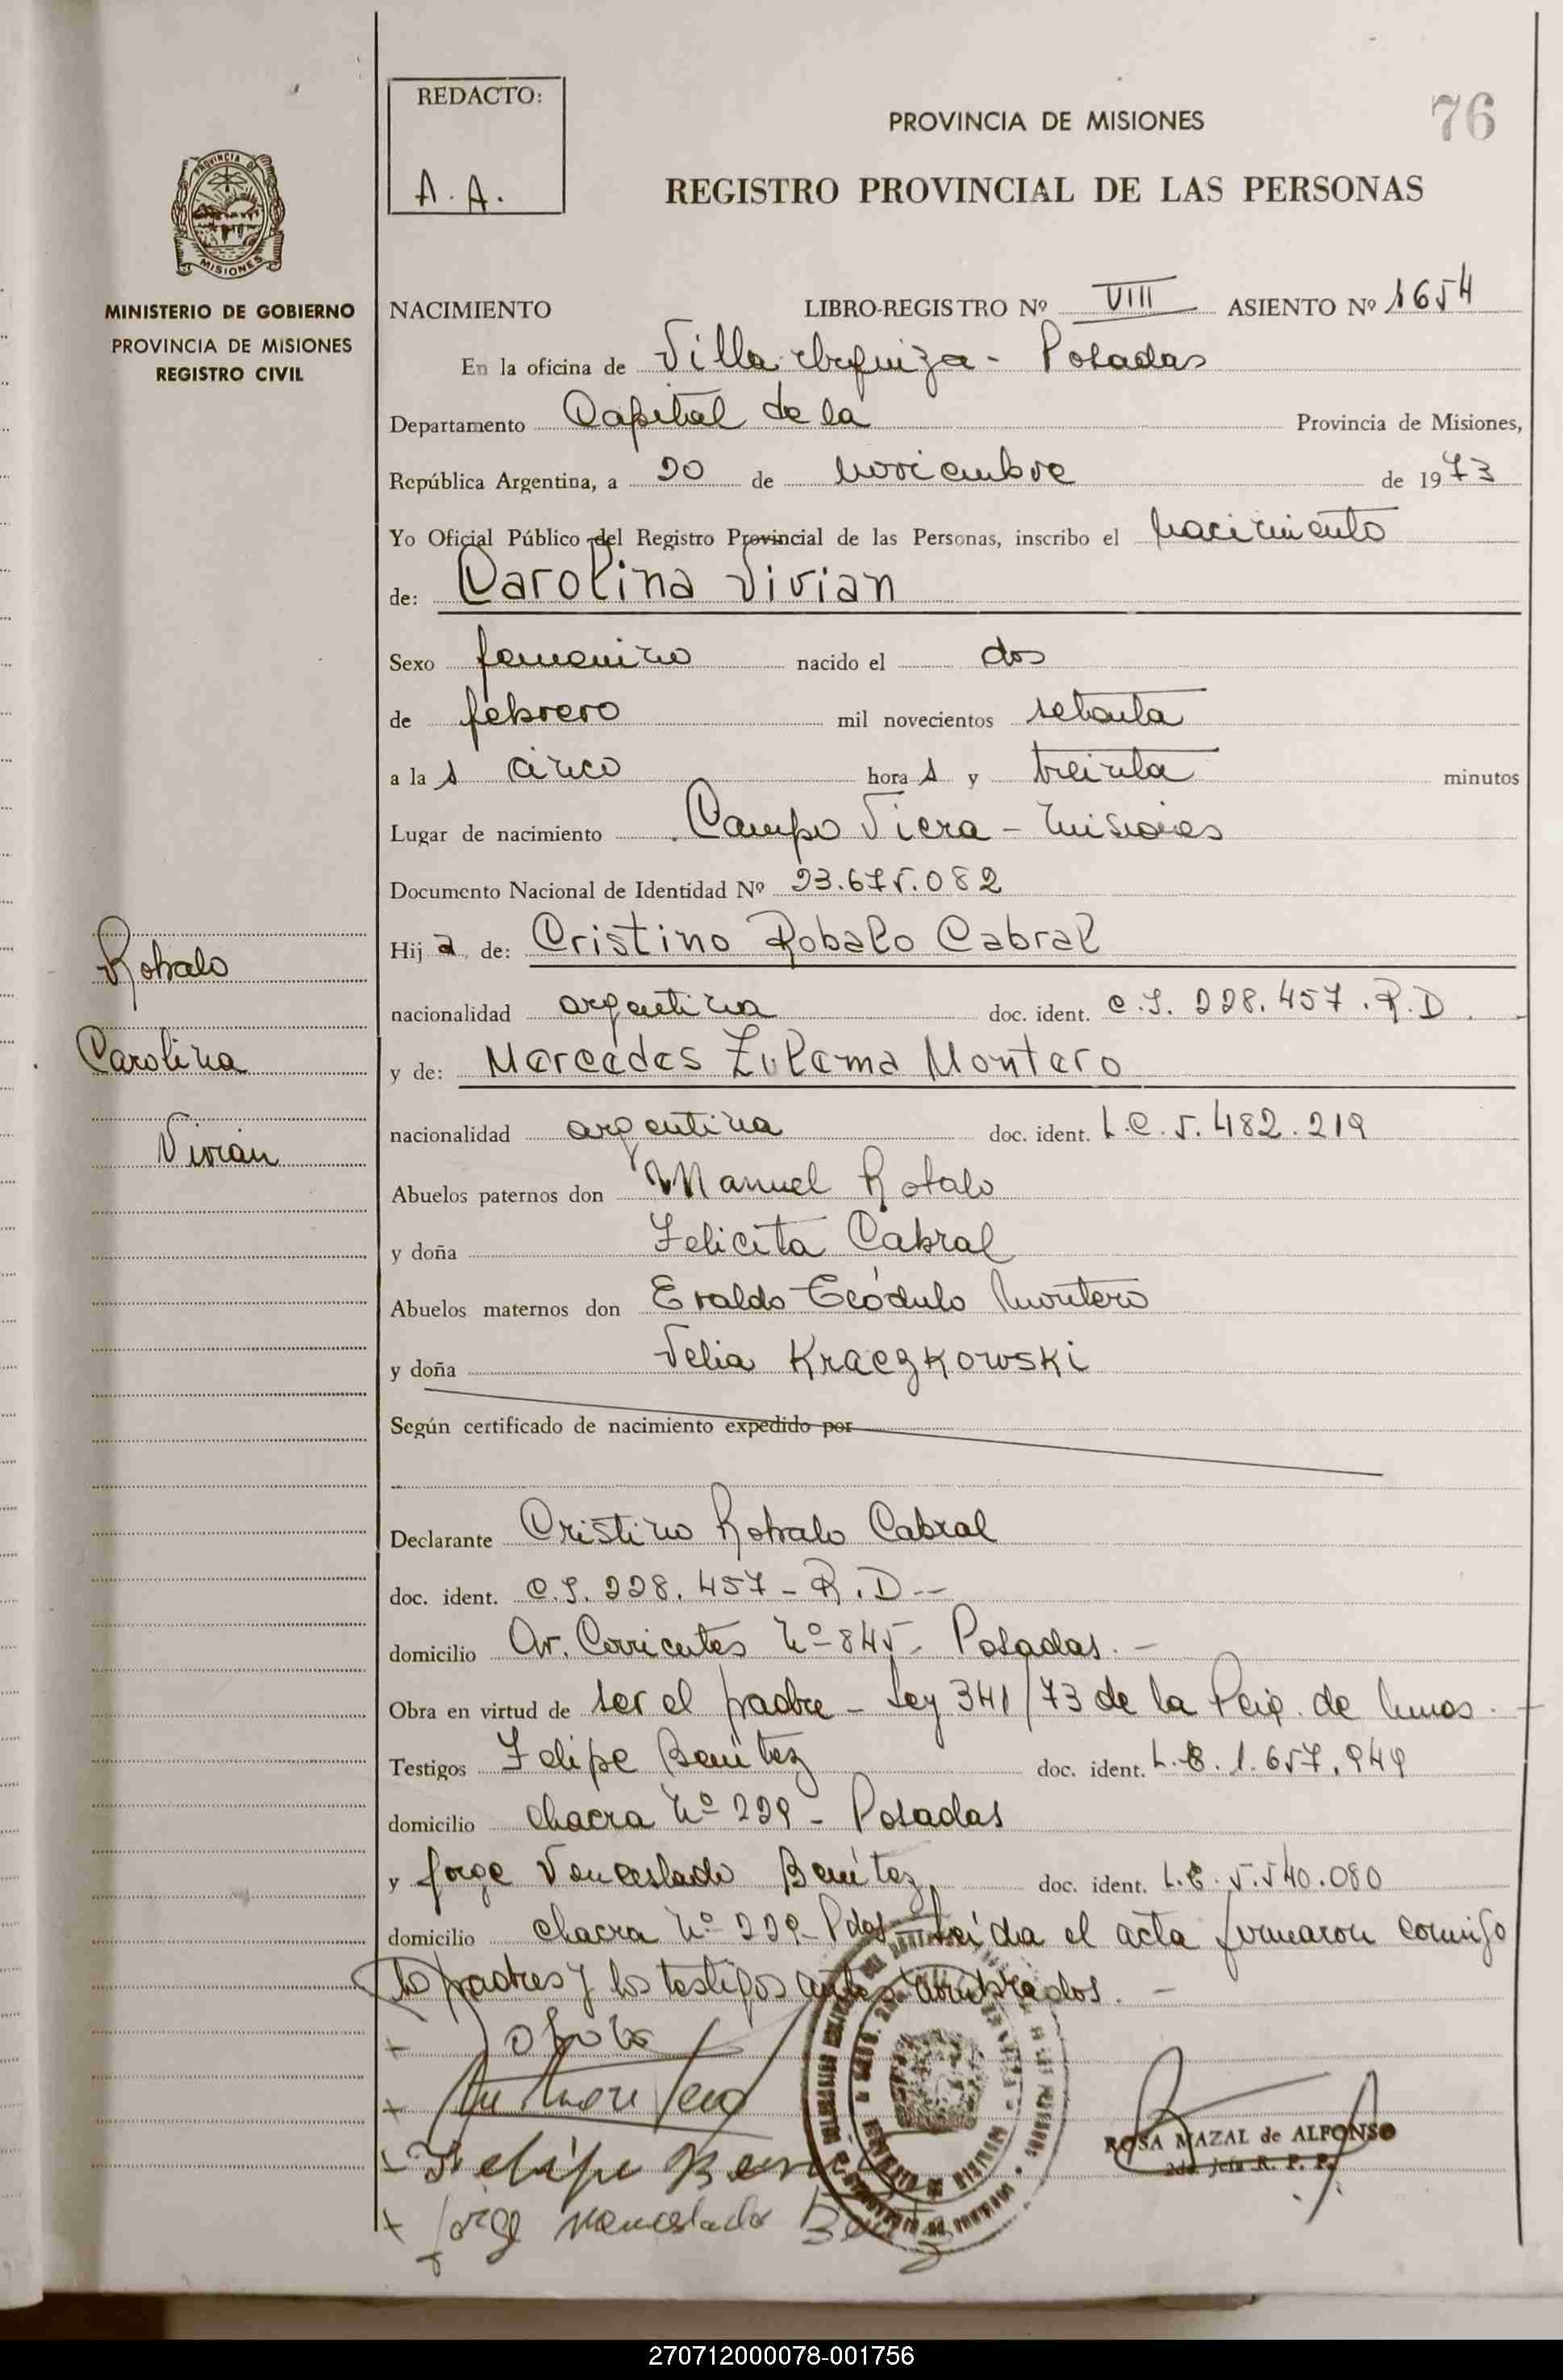 REDACTO:
A. A.
PROVINCIA DE MISIONES
76
REGISTRO PROVINCIAL DE LAS PERSONAS
PROVINCIA DE
MISIONES
MINISTERIO DE GOBIERNO
PROVINCIA DE MISIONES
REGISTRO CIVIL
NACIMIENTO LIBRO-REGISTRO Nº VIII ASIENTO Nº 1654
En la oficina de Villa Urquiza - Posadas
Departamento Capital de la Provincia de Misiones,
República Argentina, a 20 de noviembre de 1973
Yo Oficial Público del Registro Provincial de las Personas, inscribo el nacimiento
de: Carolina Vivian
Sexo femenino nacido el dos
de febrero mil novecientos setenta
a la s cinco hora s y treinta minutos
Lugar de nacimiento Campo Viera - Misiones
Documento Nacional de Identidad Nº 23.675.082
Hij a de: Cristino Robalo Cabral
nacionalidad argentina doc. ident. C.I. 228.457. P.D.
y de: Mercedes Zulema Montero
nacionalidad argentina doc. ident. L.C. 5.482.219
Abuelos paternos don Manuel Robalo
y doña Felicita Cabral
Abuelos maternos don Eraldo Teódulo Montero
y doña Velia Kraczkowski
Según certificado de nacimiento expedido por
Declarante Cristino Robalo Cabral
doc. ident. C.I. 228.457 - P.D --
domicilio Av. Corrientes Nº 845 - Posadas. -
Obra en virtud de ser el padre - Ley 341/73 de la Pcia. de Mnes. -
Testigos Felipe Benítez doc. ident. L.E. 1.657.949
domicilio chacra Nº 229 - Posadas
y Jorge Venceslado Benítez doc. ident. L.E. 5.540.080
domicilio chacra Nº 229 - Pdas - Leída el acta firmaron conmigo
los padres y los testigos antes nombrados. -
Robalo
Carolina
Vivian
Felipe Beni
Jorge Venceslado Benitez
ROSA MAZAL de ALFONSO
2da. Jefa R. P. P.
270712000078-001756